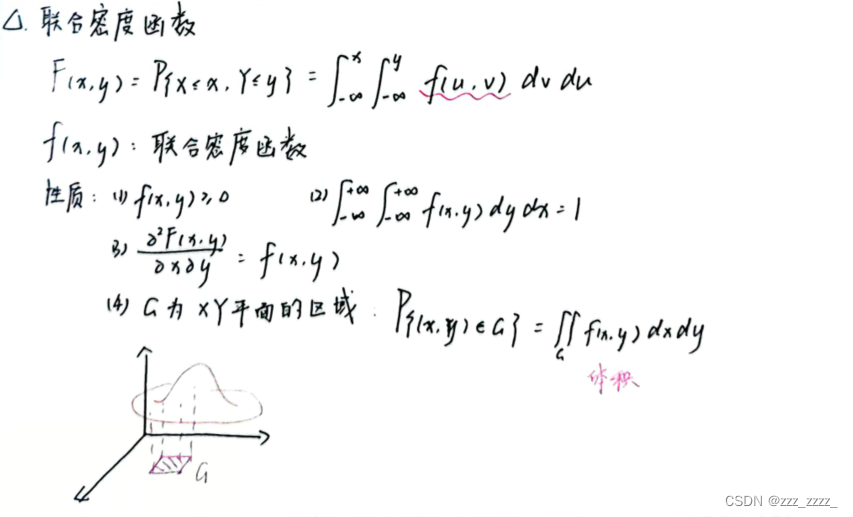 △. 联合密度函数
F(x,y) = P{X≤x, Y≤y} = ∫_{-∞}^{x} ∫_{-∞}^{y} f(u,v) dv du
f(x,y): 联合密度函数
性质: (1) f(x,y)≥0 (2) ∫_{-∞}^{+∞} ∫_{-∞}^{+∞} f(x,y) dy dx = 1
(3) ∂²F(x,y)/∂x∂y = f(x,y)
(4) G为XY平面的区域: P{(x,y)∈G} = ∬_G f(x,y) dxdy
体积
G
CSDN @zzz_zzzz_